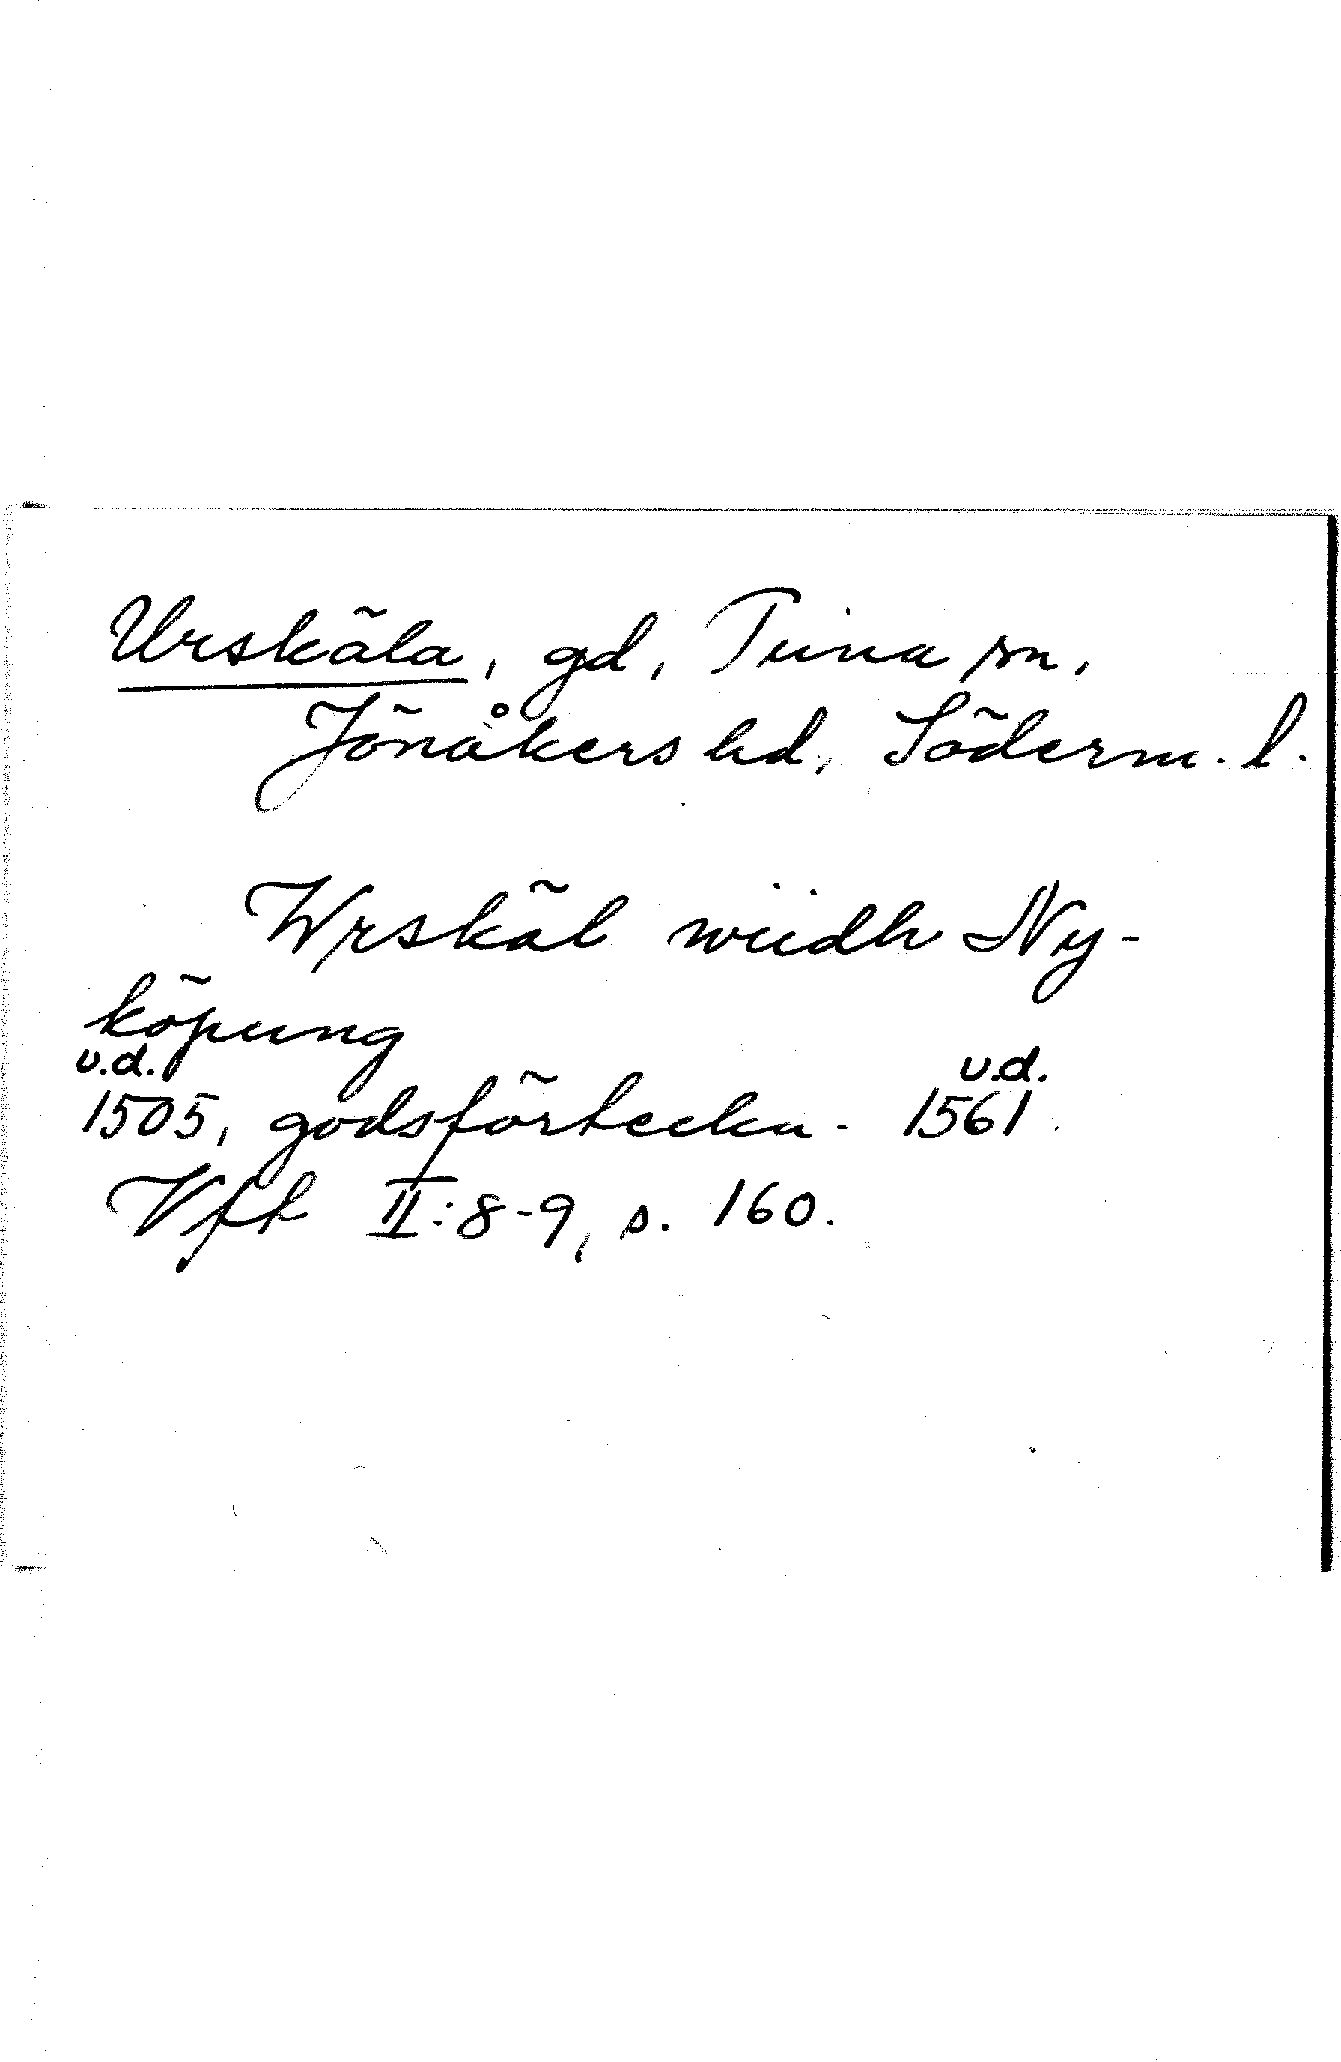 Urskäla, gd, Tuna sn,
Jönåkers hd, Söderm. l.
Wrskäl wiidh Ny-
köpung
u.d. u.d.
1505, godsförteckn. 1561.
Vfl II:8-9, s. 160.